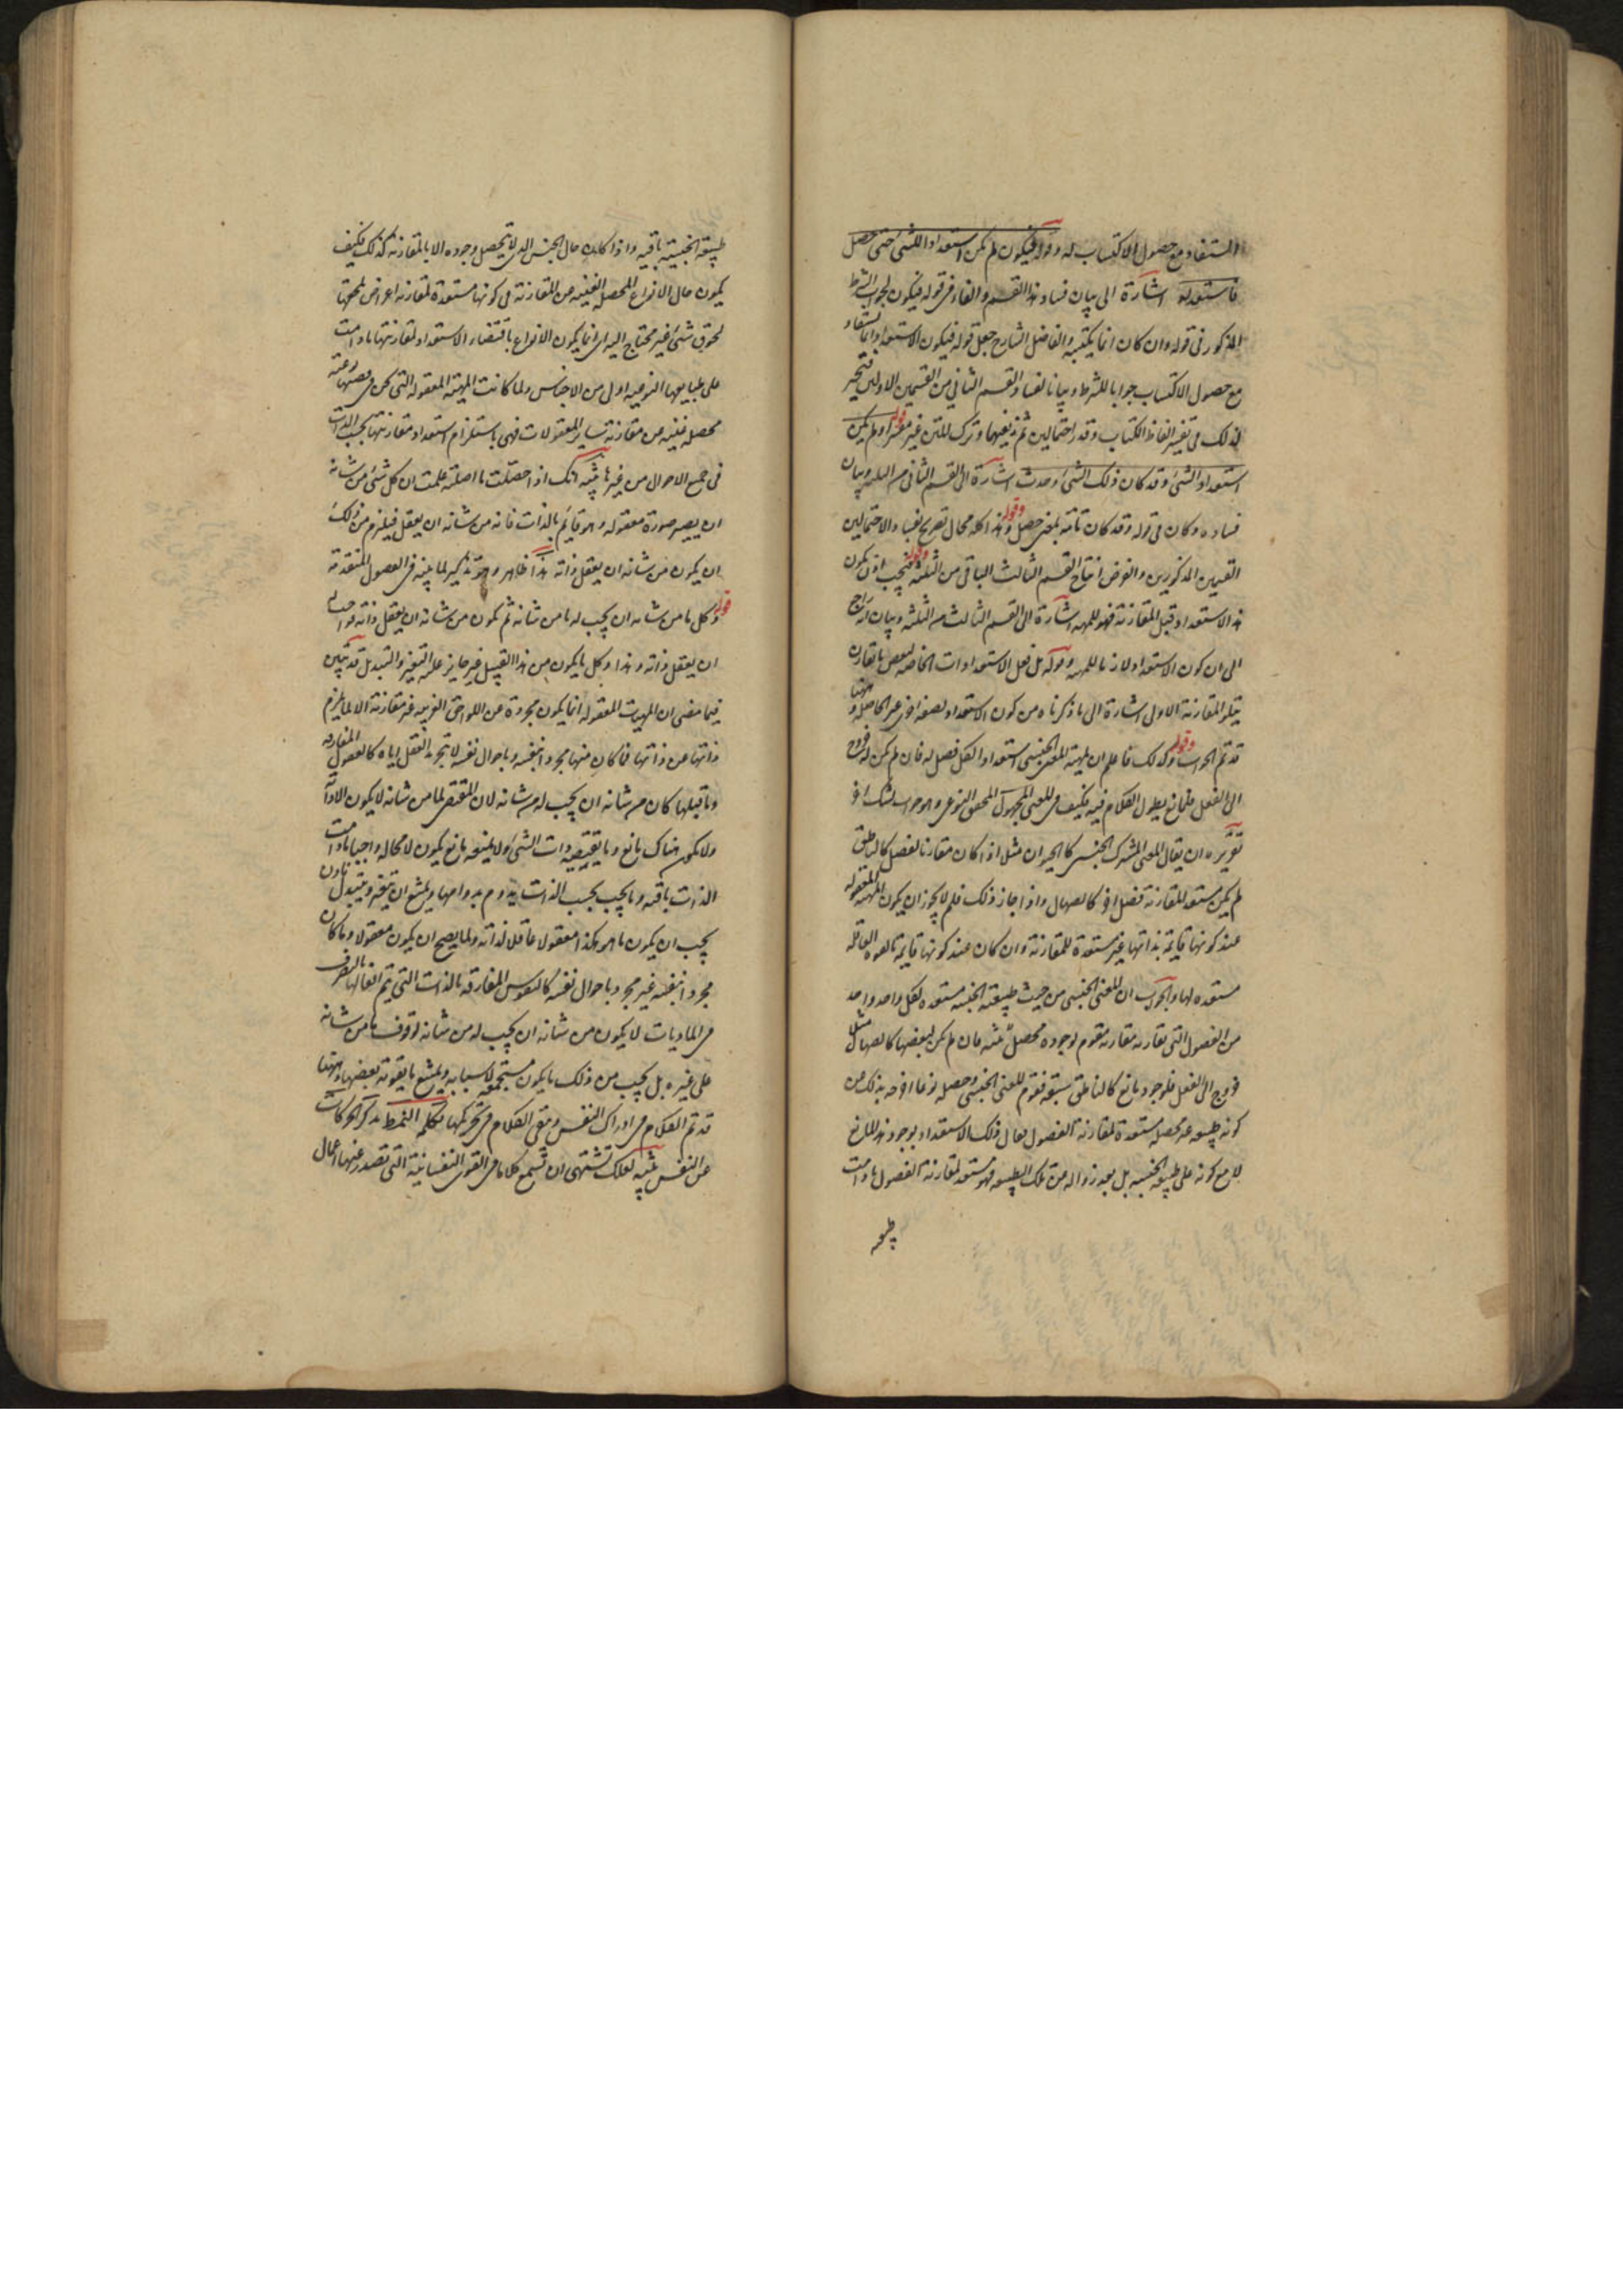 المستفاد مع حصول الاكتساب له وقوله فيكون لم يكن استعداد للشئ حتى حصل
فاستعد له اشارة الى بيان فساد هذا القسم والفاء فى قوله فيكون لجواب الشرط
المذكور فى قوله وان كان انما يكتسبه والفاضل الشارح جعل قوله فيكون الاستعداد انما يستفاد
مع حصول الاكتساب جوابا للشرط وبيانا لفساد القسم الثانى من القسمين الاولين فتحير
لذلك فى تفسير الفاظ الكتاب وقدر احتمالين ثم زيفهما وترك المتن غير مفسر قوله او لم يكن
استعداد الشئ وقد كان ذلك الشئ وحدث اشارة الى القسم الثانى من الثلثة وبيان
فساده وكان فى قوله وقد كان تامة بمعنى حصل وقوله وهذا كله محال تصريح بفساد الاحتمالين
القسمين المذكورين والغرض انتاج القسم الثالث الباقى من الثلثة وقوله فيجب اذن ان يكون
هذا الاستعداد قبل المقارنة فهو للمهية اشارة الى القسم الثالث من الثلثة وبيان انه راجع
الى ان كون الاستعداد لازما للمهية وقوله بل لعل الاستعدادات الخاصة لبعض ما يقارن
يتلو المقارنة الاولى اشارة الى ما ذكرناه من كون الاستعداد لصفة اخرى غير الحاصلة وههنا
قد تم الجواب وقوله وكذلك فاعلم ان لمهية المعنى الجنسى استعدادا لكل فصل له فان لم يكن له خروج
الى الفعل فلمانع يطول الكلام فيه فكيف فى المعنى المحقق النوعى وهو جواب لشك اخر
تقريره ان يقال المعنى المشترك الجنسى كالحيوان مثلا اذا كان مقارنا لفصل كالناطق
لم يكن مستعدا لمقارنة فصل اخر كالصهال واذا جاز ذلك فلم لا يجوز ان يكون المهية المعقولة
عند كونها قايمة بذاتها غير مستعدة للمقارنة وان كان عند كونها قايمة بالقوة العاقلة
مستعدة لها والجواب ان المعنى الجنسى من حيث طبيعته الجنسية مستعدة لكل واحد واحد
من الفصول التى تقارنه مقارنة مقوم لوجوده محصل لمهيته فان لم يكن لبعضها كالصهال مثلا
خروج الى الفعل فلوجود مانع كالناطق سبقه فقوم المعنى الجنسى وحصله نوعا اخرجه بذلك عن
كونه طبيعة غير محصلة مستعدة لمقارنة الفصول فزال ذلك الاستعداد بوجود هذا المانع
لا مع كونه على طبيعته الجنسية بل بعد زواله عن تلك الطبيعة فهو مستعد لمقارنة الفصول ما دامت
طبيعته
طبيعته الجنسية باقية واذا كان حال الجنس الذى لا يتحصل وجوده الا بالمقارنة كذلك فكيف
يكون حال الانواع المحصلة الغنية عن المقارنة فى كونها مستعدة لمقارنة اعراض تلحقها
لحوق شئ غير محتاج اليه اى انما يكون الانواع باقتضاء الاستعداد لمقارنتها ما دامت
على طبايعها النوعية اولى من الاجناس ولما كانت المهية المعقولة التى نحن فى قصتها نوعية
محصلة غنية عن مقارنة ساير المعقولات فهى باستلزام استعداد مقارنتها بحسب الذات
فى جميع الاحوال من غيرها تنبيه انك اذا حصلت ما اصلته علمت ان كل شئ من شانه
ان يصير صورة معقولة وهو قايم بالذات فانه من شانه ان يعقل فيلزم من ذلك
ان يكون من شانه ان يعقل ذاته هذا ظاهر وهو تذكير لما بينه فى الفصول المتقدمة
قوله وكل ما من شانه ان يجب له ما من شانه ثم يكون من شانه ان يعقل ذاته فواجب له
ان يعقل ذاته وهذا وكل ما يكون من هذا القبيل غير جايز عليه التغير والتبديل قد تبين
فيما مضى ان المهيات المعقولة انما يكون مجردة عن اللواحق الغريبة غير مقارنة الا لما يلزم
ذاتها عن ذاتها فما كان منها مجردا بنفسه وباحوال نفسه لا بتجريد العقل اياه كالعقول المفارقة
وما قبلها كان من شانه ان يجب له من شانه لان المقتضى لما من شانه لا يكون الا ذاته
ولا يكون هناك مانع وما يقتضيه ذات الشئ ولا يمنعه مانع يكون لا محالة واجبا ما دامت
الذات باقية وما يجب بحسب الذات يدوم بدوامها ويمتنع ان يتغير ويتبدل فاذن
يجب ان يكون ما هو هكذا معقولا عاقلا لذاته ولما يصح ان يكون معقولا وما كان
مجردا بنفسه غير مجرد باحوال نفسه كالنفوس المفارقة بالذات التى يتم افعالها بالتصرف
فى الماديات لا يكون من شانه ان يجب له من شانه لتوقف ما من شانه
على غيره بل يجب من ذلك ما يكون مستجمعا لاسبابه ويمتنع ما يفوته بعضها وههنا
قد تم الكلام فى ادراك النفس وبقى الكلام فى تحريكها تكملة النمط بذكر الحركات
عن النفس تنبيه لعلك تشتهى ان تسمع كلاما فى القوى النفسانية التى تصدر عنها اعمال